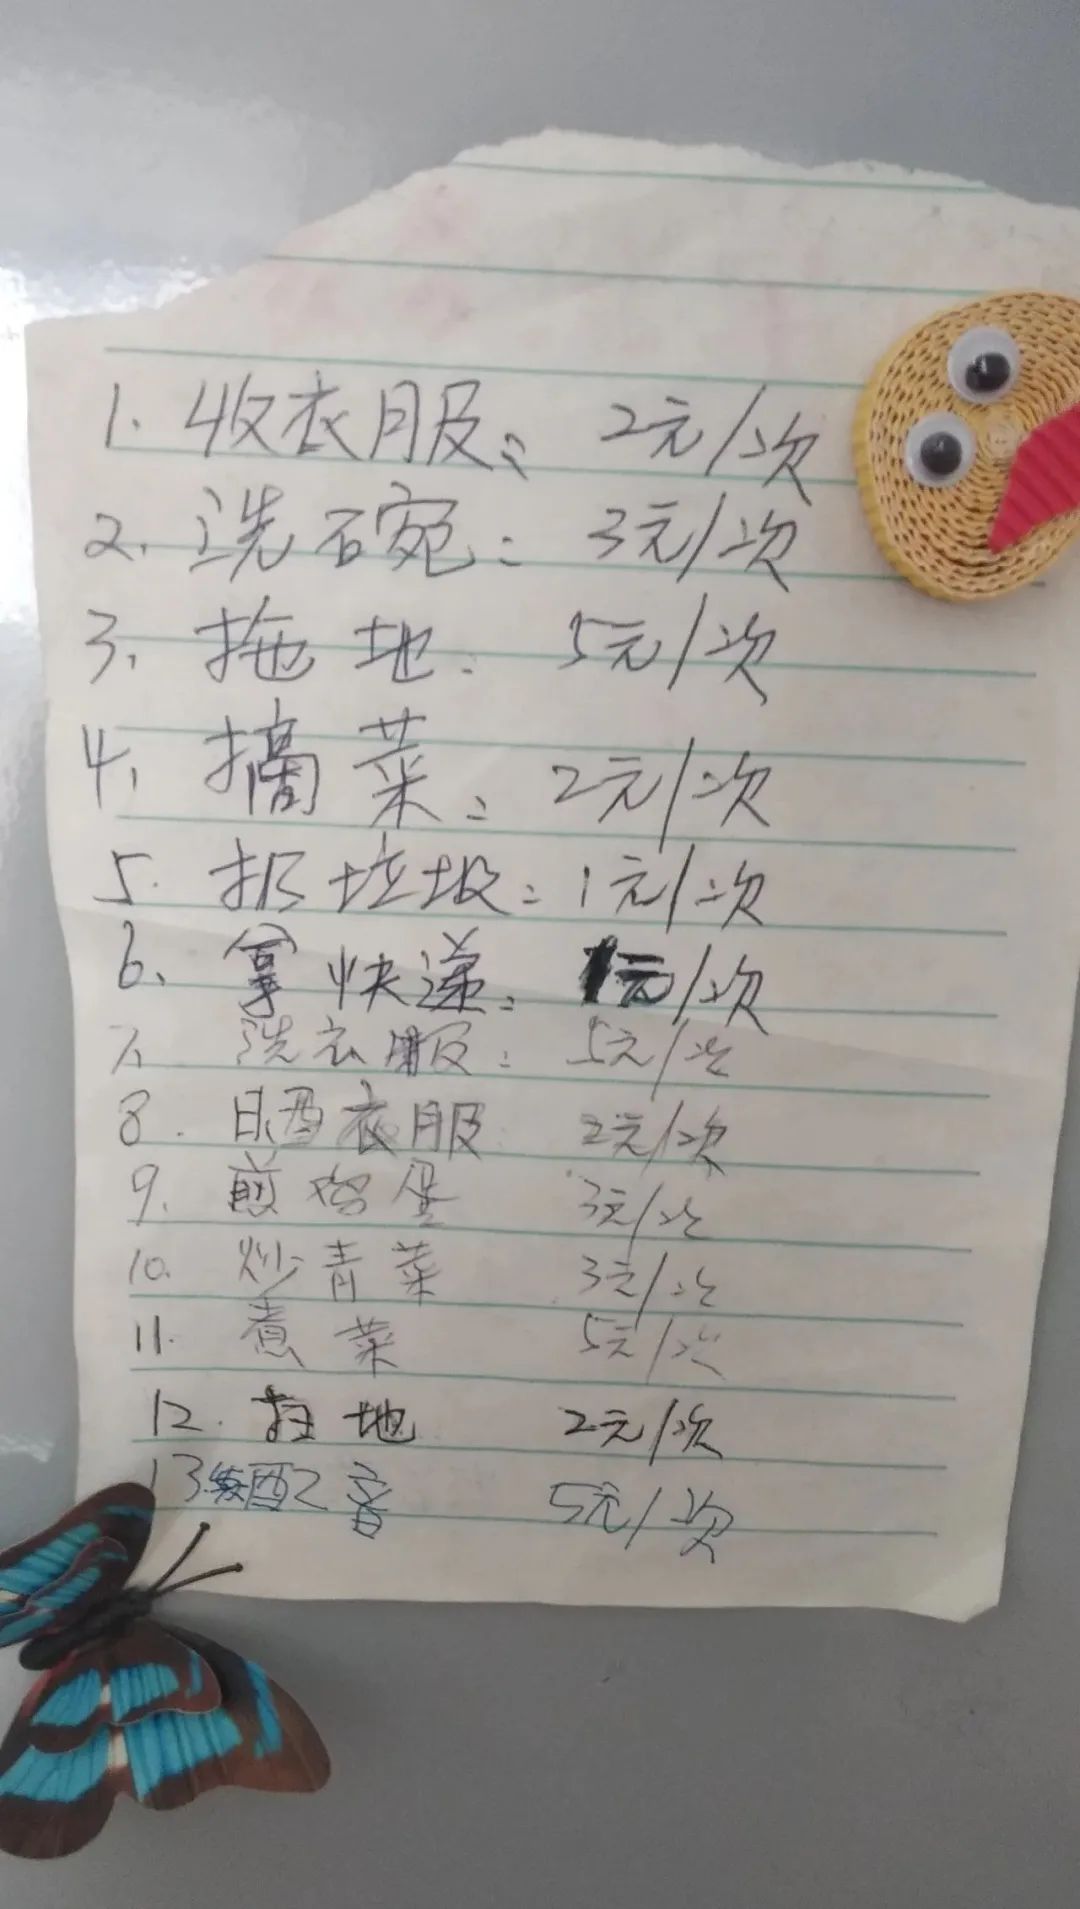 1. 收衣服: 2元/次
2. 洗碗: 3元/次
3. 拖地: 5元/次
4. 摘菜: 2元/次
5. 扔垃圾: 1元/次
6. 拿快递: 1元/次
7. 洗衣服: 5元/次
8. 晒衣服 2元/次
9. 煎鸡蛋 3元/次
10. 炒青菜 3元/次
11. 煮菜 5元/次
12. 扫地 2元/次
13. 配音 5元/次